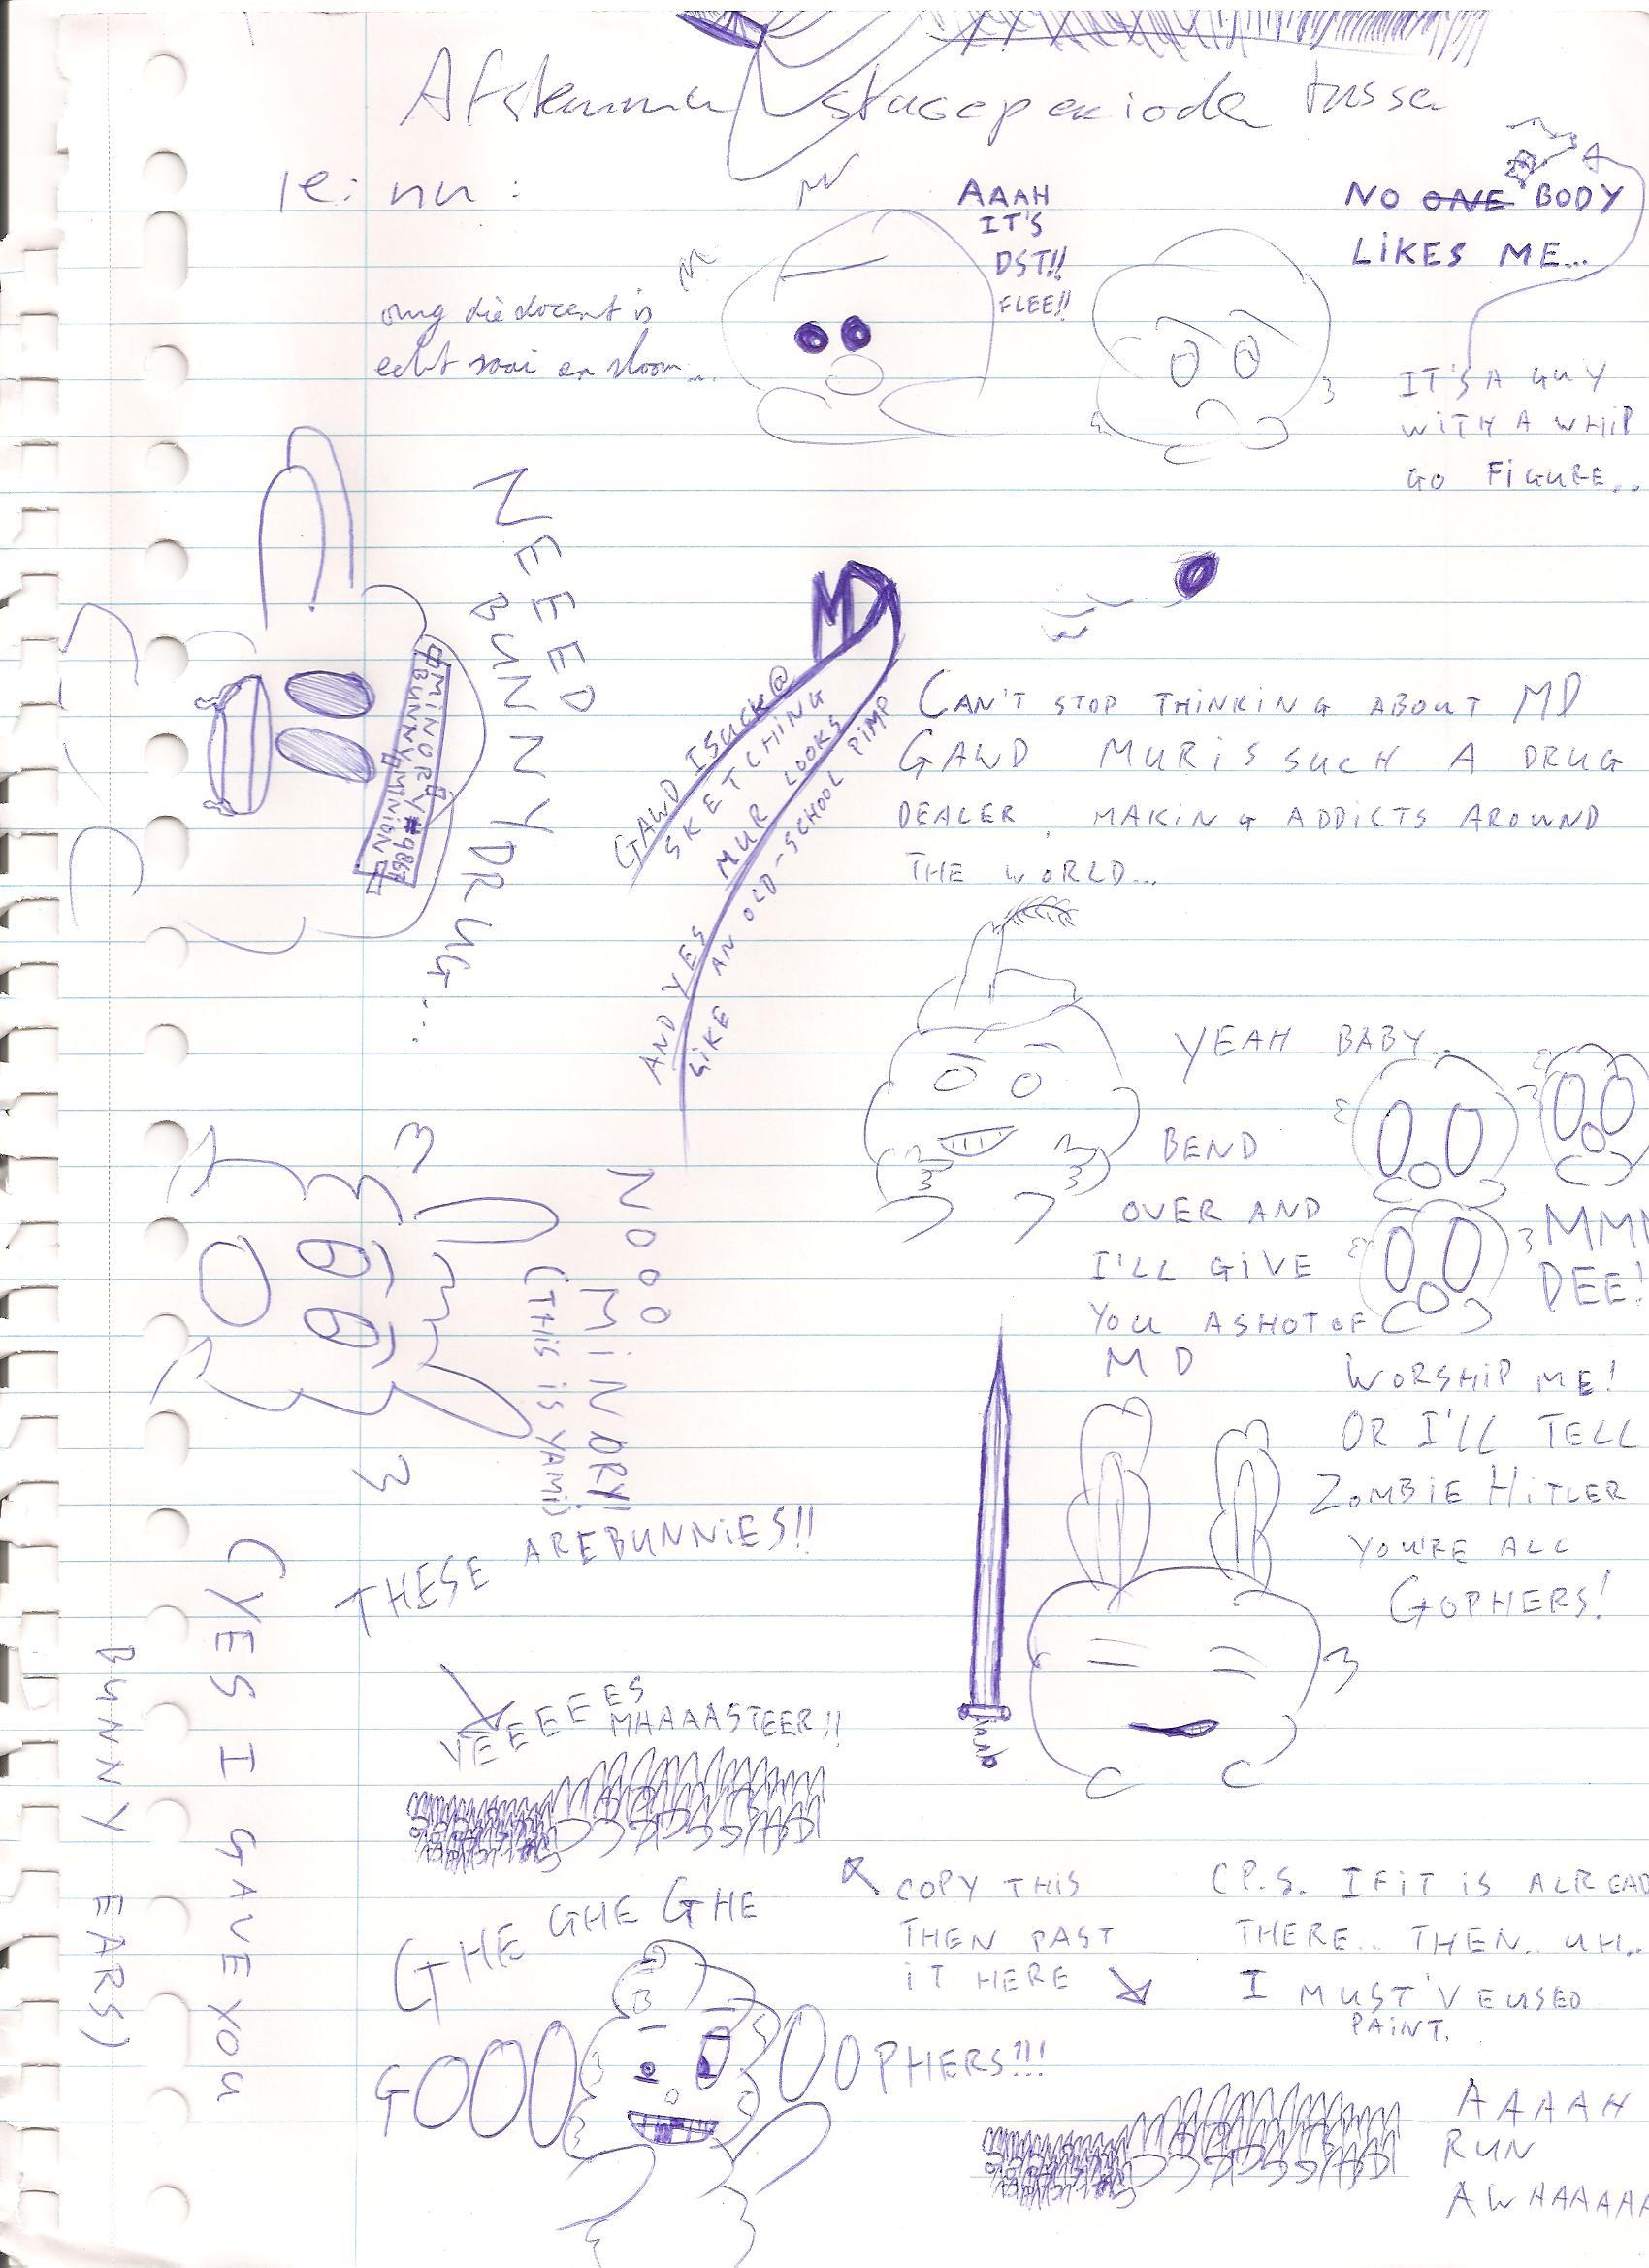 Afstemmen stageperioden tussen
omg die docent is
echt saai en sloom...
AAAH
IT'S
DST!!
FLEE!!
NO ONE BODY
LIKES ME...
IT'S A GUY
WITH A WHIP
GO FIGURE..
NEEED
BUNNY DRUG...
MINORY #9867
BUNNY MINION
MD
GAWD I SUCK @
SKETCHING
AND YES MUR LOOKS
LIKE AN OLD-SCHOOL PIMP
CAN'T STOP THINKING ABOUT MD
GAWD MUR IS SUCH A DRUG
DEALER, MAKING ADDICTS AROUND
THE WORLD...
YEAH BABY..
BEND
OVER AND
I'LL GIVE
YOU A SHOT OF
MD
MMM
DEE!
NOOOO
MINORY!
(THIS IS YAMI)
WORSHIP ME!
OR I'LL TELL
ZOMBIE HITLER
YOU'RE ALL
GOPHERS!
THESE ARE BUNNIES!!
(YES I GAVE YOU
BUNNY EARS)
YEEEEES
MAAAASTEER!!
COPY THIS
THEN PAST
IT HERE
(P.S. IF IT IS ALREAD
THERE.. THEN.. UH..
I MUST'VE USED
PAINT.
GHE GHE GHE
GOOOOOPHERS!!!
AAAAH
RUN
AWHAAAAA